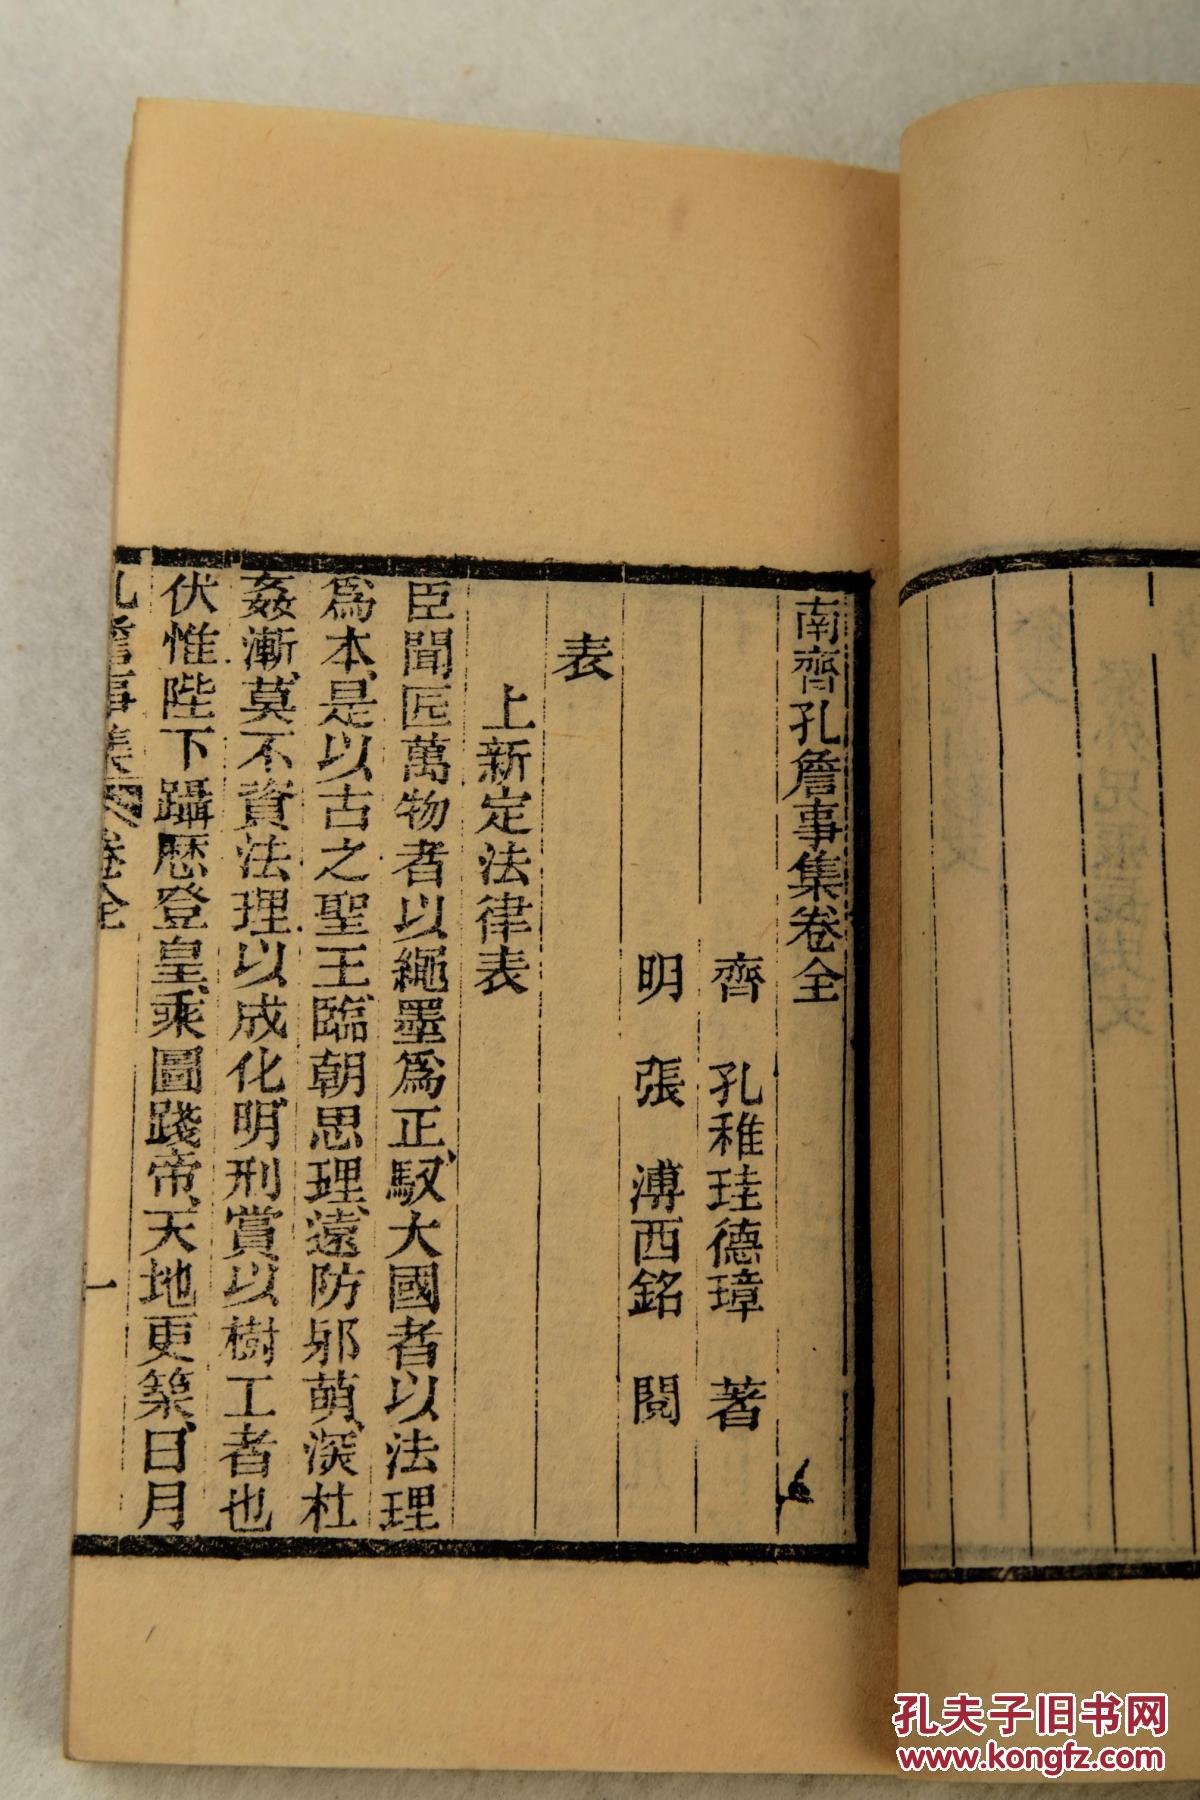 南齊孔詹事集卷全
齊　孔稚珪德璋　著
明　張　溥西銘　閱
表
上新定法律表
臣聞匠萬物者以繩墨爲正、馭大國者以法理
爲本、是以古之聖王、臨朝思理、遠防邪萌、深杜
姦漸、莫不資法理以成化、明刑賞以樹工者也
伏惟陛下躡歷登皇、乘圖踐帝、天地更築、日月
孔詹事集　卷全　一
孔夫子旧书网
www.kongfz.com